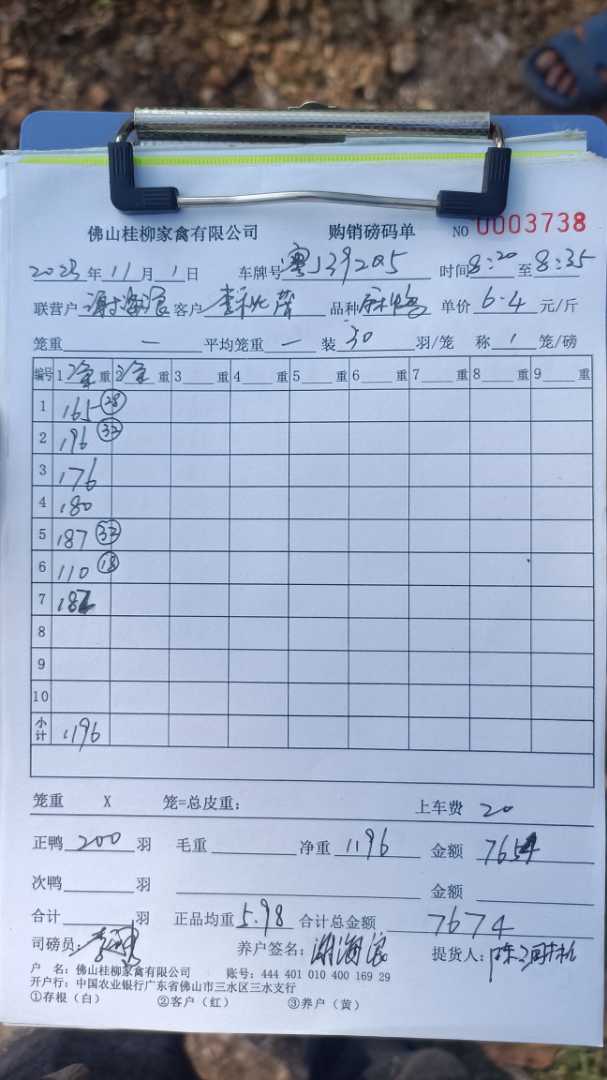 佛山桂柳家禽有限公司 购销磅码单 NO 0003738
2023年11月1日 车牌号 粤J39205 时间8:20至8:35
联营户 客户 品种 麻鸭 单价 6.4 元/斤
笼重 — 平均笼重 — 装 30 羽/笼 称 1 笼/磅
编号 1 重 重 3 重 4 重 5 重 6 重 7 重 8 重 9 重
1 165 28
2 196 33
3 176
4 180
5 187 33
6 110 18
7 182
8
9
10
小计 1196
笼重 X 笼=总皮重: 上车费 20
正鸭 200 羽 毛重 净重 1196 金额 7654
次鸭 羽 金额
合计 羽 正品均重 5.98 合计总金额 7674
司磅员: 养户签名: 提货人: 陈
户 名: 佛山桂柳家禽有限公司 账号: 444 401 010 400 169 29
开户行: 中国农业银行广东省佛山市三水区三水支行
①存根(白) ②客户(红) ③养户(黄)